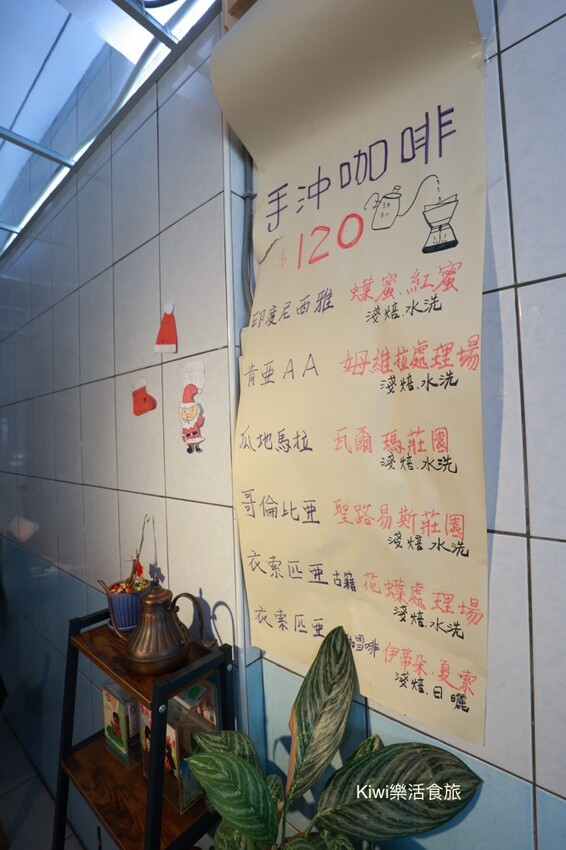 手沖咖啡
$120
印度尼西雅 蝶蜜.紅蜜
淺焙.水洗
肯亜AA 姆維拉處理場
淺焙.水洗
瓜地馬拉 瓦爾瑪莊園
淺焙.水洗
哥倫比亜 聖路易斯莊園
淺焙.水洗
衣索匹亜 古籍 花蝶處理場
淺焙.水洗
衣索匹亜 雪啡 伊蒂朵.夏索
淺焙.日曬
Kiwi樂活食旅